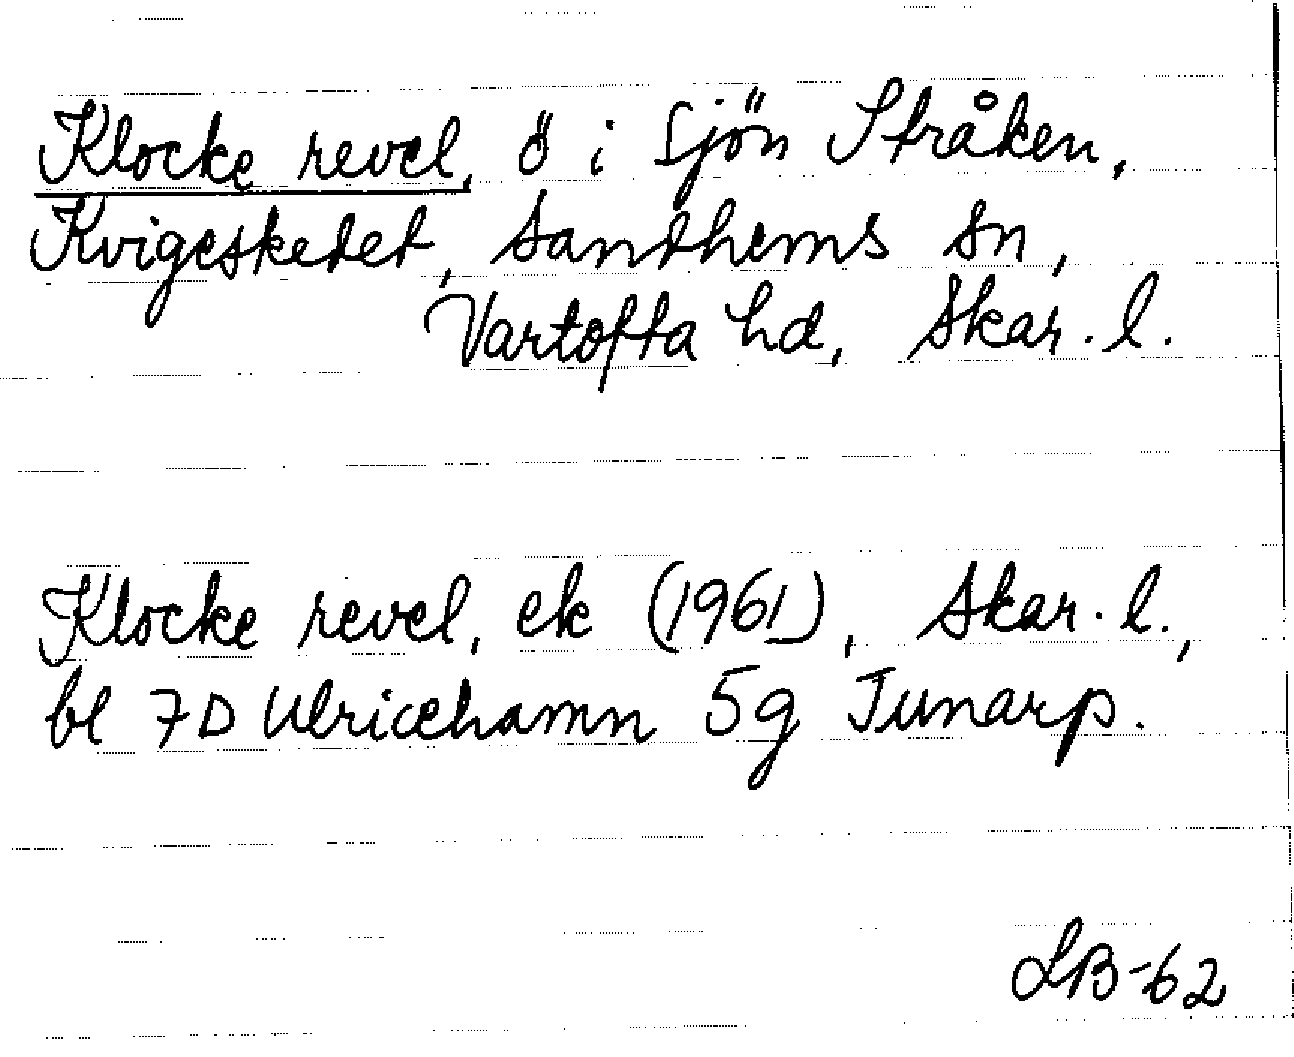 Klocke revel, ö i sjön Stråken,
Kvigeskedet, Sandhems sn,
Vartofta hd, Skar. l.
Klocke revel, ek (1961), Skar. l.,
bl 7D Ulricehamn 5g Tunarp.
LB-62